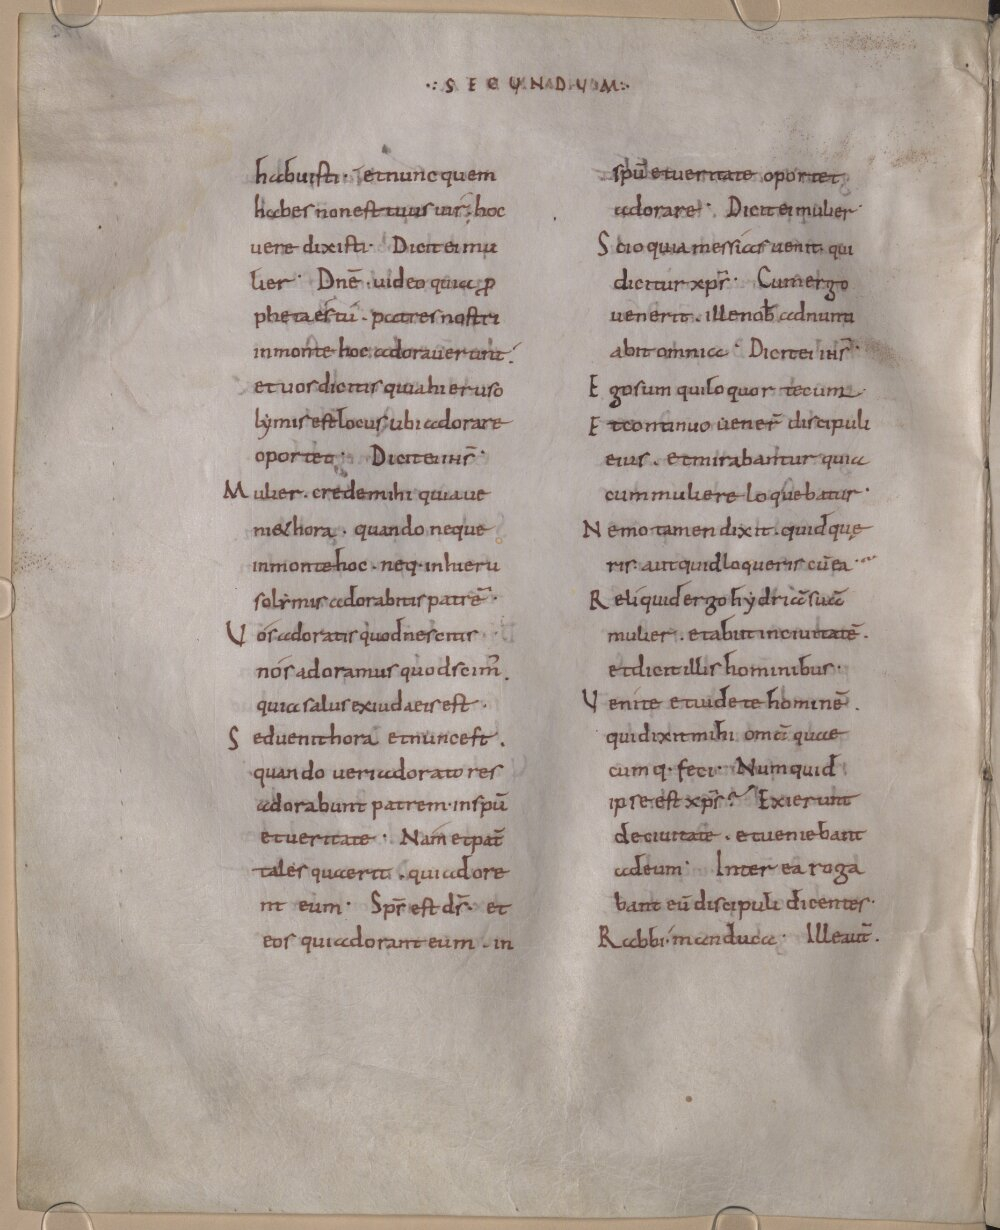 ·:SECUNDUM:·
habuisti · et nunc quem
habes non est tuus uir; hoc
uere dixisti · Dicit ei mu
lier · Dnē · uideo quia ꝓ
pheta és tú · patres nostri
in monte hoc adorauerunt ;
et uos dicitis quia hieruso
lymis est locus ubi adorare
oportet · Dicit ei ihs̄ ·
Mulier · crede mihi quia ue
ni& hora · quando neque
in monte hoc · neq· in hieru
solymis adorabitis patrē ·
Uós adoratis quod nescitis ·
nós adoramus quod scim̄ .
quia salus ex iudaeis est ·
Sed uenit hora et nunc est .
quando ueri adoratores
adorabunt patrem · in spū
et ueritate · Nam et pat̄
táles quaerit · qui adore
nt eum · Sps̄ est ds̄ · et
eos qui adorant eum · in
spū et ueritate oportet
adorare · Dicit ei mulier ·
Scio quia messias uenit · qui
dicitur xps̄ · Cum ergo
uenerit · ille nob̄ adnunti
abit omnia · Dicit ei ihs̄ ·
Ego sum qui loquor tecum ·
Et continuo uener̄ discipuli
eius · et mirabantur quia
cum muliere loquebatur ·
Nemo tamen dixit · quid quę
ris · aut quid loqueris cū ea ·
Reliquid ergo hydriā suā
mulier · et abiit in ciuitatē .
et dicit illis hominibus ·
Uenite et uidete hominē .
qui dixit mihi omīa quae
cumq· feci · Numquid
ipse est xps̄ ? Exierunt
de ciuitate · et ueniebant
ad eum · Inter eá roga
bant eū discipuli dicentes ·
Rabbi · manduca · Ille aut̄ .